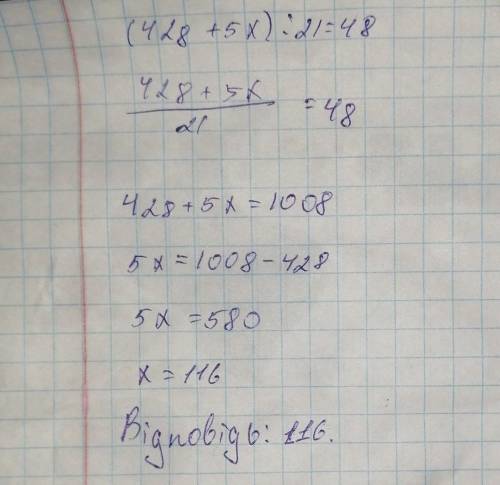 (428 + 5x) : 21 = 48
428 + 5x
———— = 48
21
428 + 5x = 1008
5x = 1008 - 428
5x = 580
x = 116
Відповідь: 116.